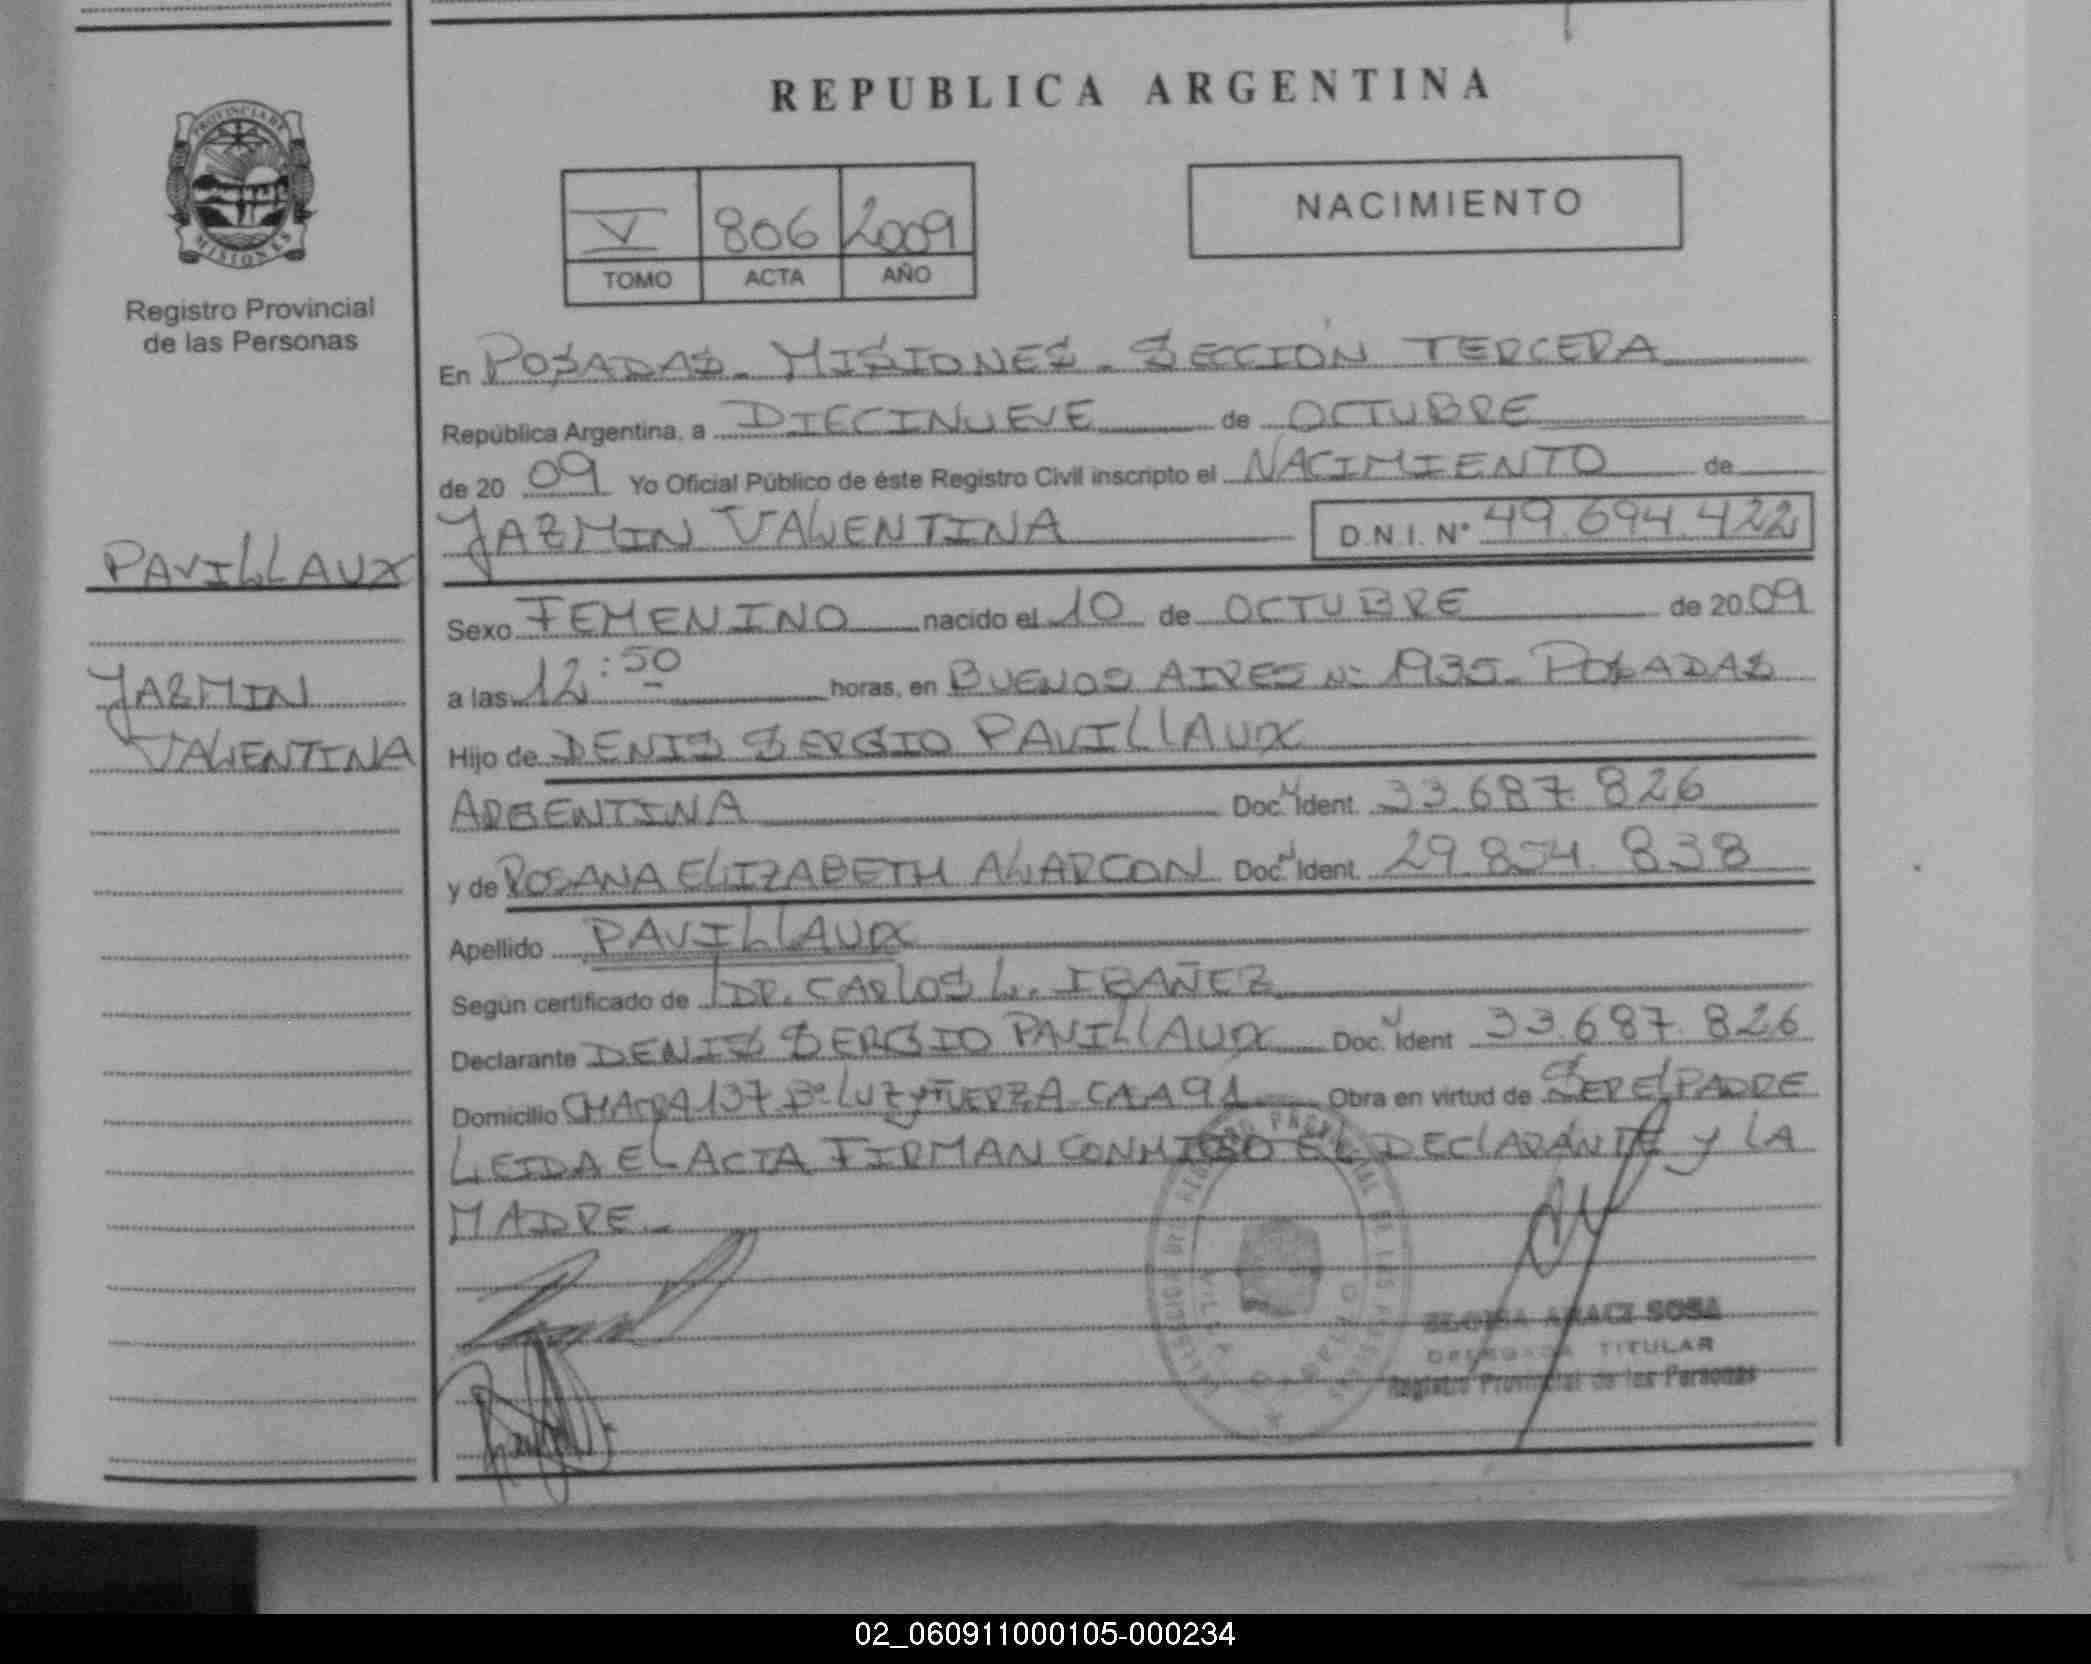 REPUBLICA ARGENTINA
PROVINCIA DE
MISIONES
Registro Provincial
de las Personas
NACIMIENTO
V 806 2009
TOMO ACTA AÑO
En POSADAS - MISIONES - SECCION TERCERA
República Argentina, a DIECINUEVE de OCTUBRE
de 20 09 Yo Oficial Público de éste Registro Civil inscripto el NACIMIENTO de
YAZMIN VALENTINA D.N.I. N° 49.694.422
PAVILLAUX
YAZMIN
VALENTINA
Sexo FEMENINO nacido el 10 de OCTUBRE de 20 09
a las 12:50 horas, en BUENOS AIRES N° 1935 - POSADAS
Hijo de DENIS SERGIO PAVILLAUX
ARGENTINA Doc. Ident. 33.687.826
y de ROSANA ELIZABETH ALARCON Doc. Ident. 29.854.838
Apellido PAVILLAUX
Según certificado de DR. CARLOS L. IBAÑEZ
Declarante DENIS SERGIO PAVILLAUX Doc. Ident 33.687.826
Domicilio CHACRA 137 B° LUZ y FUERZA CASA 91 Obra en virtud de SER EL PADRE
LEIDA EL ACTA FIRMAN CONMIGO EL DECLARANTE y LA
MADRE -
ARACI SOSA
DELEGADA TITULAR
Registro Provincial de las Personas
02_060911000105-000234